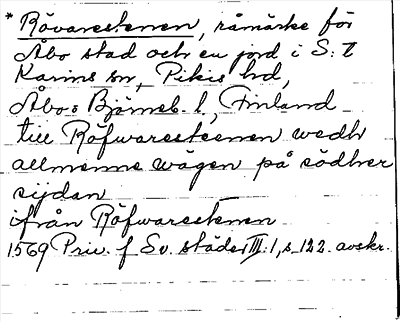 * Rövarestenen, råmärke för
Åbo stad och en jord i S:t
Karins sn, Pikis hd,
Åbo o Björneb. l, Finland
till Röfwaresteenen wedh
allmenne wägen på södher
sijdan
ifrån Röfwarestenen
1569 Priv. f Sv. städer III:1, s. 122. avskr.